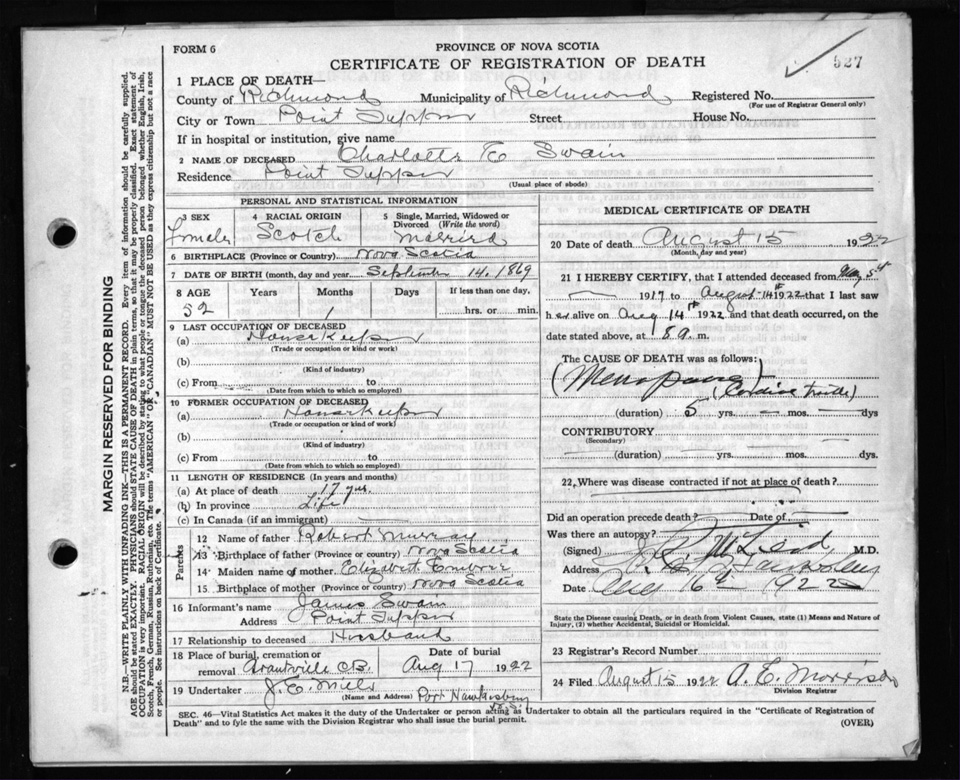 FORM 6
PROVINCE OF NOVA SCOTIA
CERTIFICATE OF REGISTRATION OF DEATH
527
1 PLACE OF DEATH—
County of Richmond Municipality of Richmond Registered No.
(For use of Registrar General only)
City or Town Point Tupper Street House No.
If in hospital or institution, give name
2 NAME OF DECEASED Charlotte E Swain
Residence Point Tupper
(Usual place of abode)
PERSONAL AND STATISTICAL INFORMATION
3 SEX 4 RACIAL ORIGIN 5 Single, Married, Widowed or Divorced (Write the word)
Female Scotch Married
6 BIRTHPLACE (Province or Country) Nova Scotia
7 DATE OF BIRTH (month, day and year September 14, 1869
8 AGE Years Months Days If less than one day,
52 hrs. or min.
9 LAST OCCUPATION OF DECEASED
(a) Housekeeper
(Trade or occupation or kind or work)
(b)
(Kind of industry)
(c) From to
(Date from which to which so employed)
10 FORMER OCCUPATION OF DECEASED
(a) Housekeeper
(Trade or occupation or kind of work)
(b)
(Kind of industry)
(c) From to
(Date from which to which so employed)
11 LENGTH OF RESIDENCE (In years and months)
(a) At place of death 17 yrs.
(b) In province Life
(c) In Canada (if an immigrant)
Parents
12 Name of father Robert Murray
13 Birthplace of father (Province or country) Nova Scotia
14 Maiden name of mother Elizabeth
15 Birthplace of mother (Province or country) Nova Scotia
16 Informant's name James Swain
Address Point Tupper
17 Relationship to deceased Husband
18 Place of burial, cremation or removal Grantville C.B. Date of burial Aug 17 1922
19 Undertaker J. E.
(Name and Address) Port Hawkesbury N.S.
MEDICAL CERTIFICATE OF DEATH
20 Date of death August 15 1922
(Month, day and year)
21 I HEREBY CERTIFY, that I attended deceased from May 5th
— 1917 to August 14th 1922 that I last saw
h er alive on Aug 14th 1922 and that death occurred, on
date stated above, at 8 a. m.
The CAUSE OF DEATH was as follows:
(Menopause) (Cardiac
(duration) 5 yrs. — mos. — dys
CONTRIBUTORY
(Secondary)
(duration) yrs. mos. dys.
22, Where was disease contracted if not at place of death?
Did an operation precede death? Date of
Was there an autopsy?
(Signed) M.D.
Address
Date Aug 16th 1922
State the Disease causing Death, or in death from Violent Causes, state (1) Means and Nature of Injury, (2) whether Accidental, Suicidal or Homicidal.
23 Registrar's Record Number
24 Filed August 15 1922 A. E. Morrison
Division Registrar
SEC. 46—Vital Statistics Act makes it the duty of the Undertaker or person acting as Undertaker to obtain all the particulars required in the "Certificate of Registration of
Death" and to fyle the same with the Division Registrar who shall issue the burial permit.
(OVER)
MARGIN RESERVED FOR BINDING
N.B.—WRITE PLAINLY WITH UNFADING INK—THIS IS A PERMANENT RECORD. Every item of information should be carefully supplied.
AGE should be stated EXACTLY. PHYSICIANS should STATE CAUSE OF DEATH in plain terms, so that it may be properly classified. Exact statement of
OCCUPATION is very important. RACIAL ORIGIN will be described by stating to what people or tongue the deceased person belonged whether English, Irish,
Scotch, French, German, Russian, Ruthenian, etc. The terms "AMERICAN" OR "CANADIAN" MUST NOT BE USED as they express citizenship but not a race
or people. See instructions on back of Certificate.